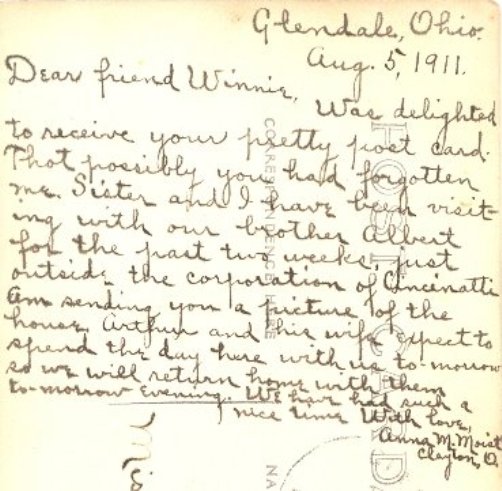 Glendale, Ohio.
Aug. 5, 1911.
Dear friend Winnie,
Was delighted
to receive your pretty post card.
That possibly you had forgotten
me. Sister and I have been visit
ing with our brother Albert
for the past two weeks, just
outside the corporation of Cincinatti
Am sending you a picture of the
house. Arthur and his wife expect to
spend the day here with us to-morrow
so we will return home with them
to-morrow evening. We have had such a
nice time With love,
Anna M. Moist
Clayton, O.
POST CARD
CORRESPONDENCE HERE
NA